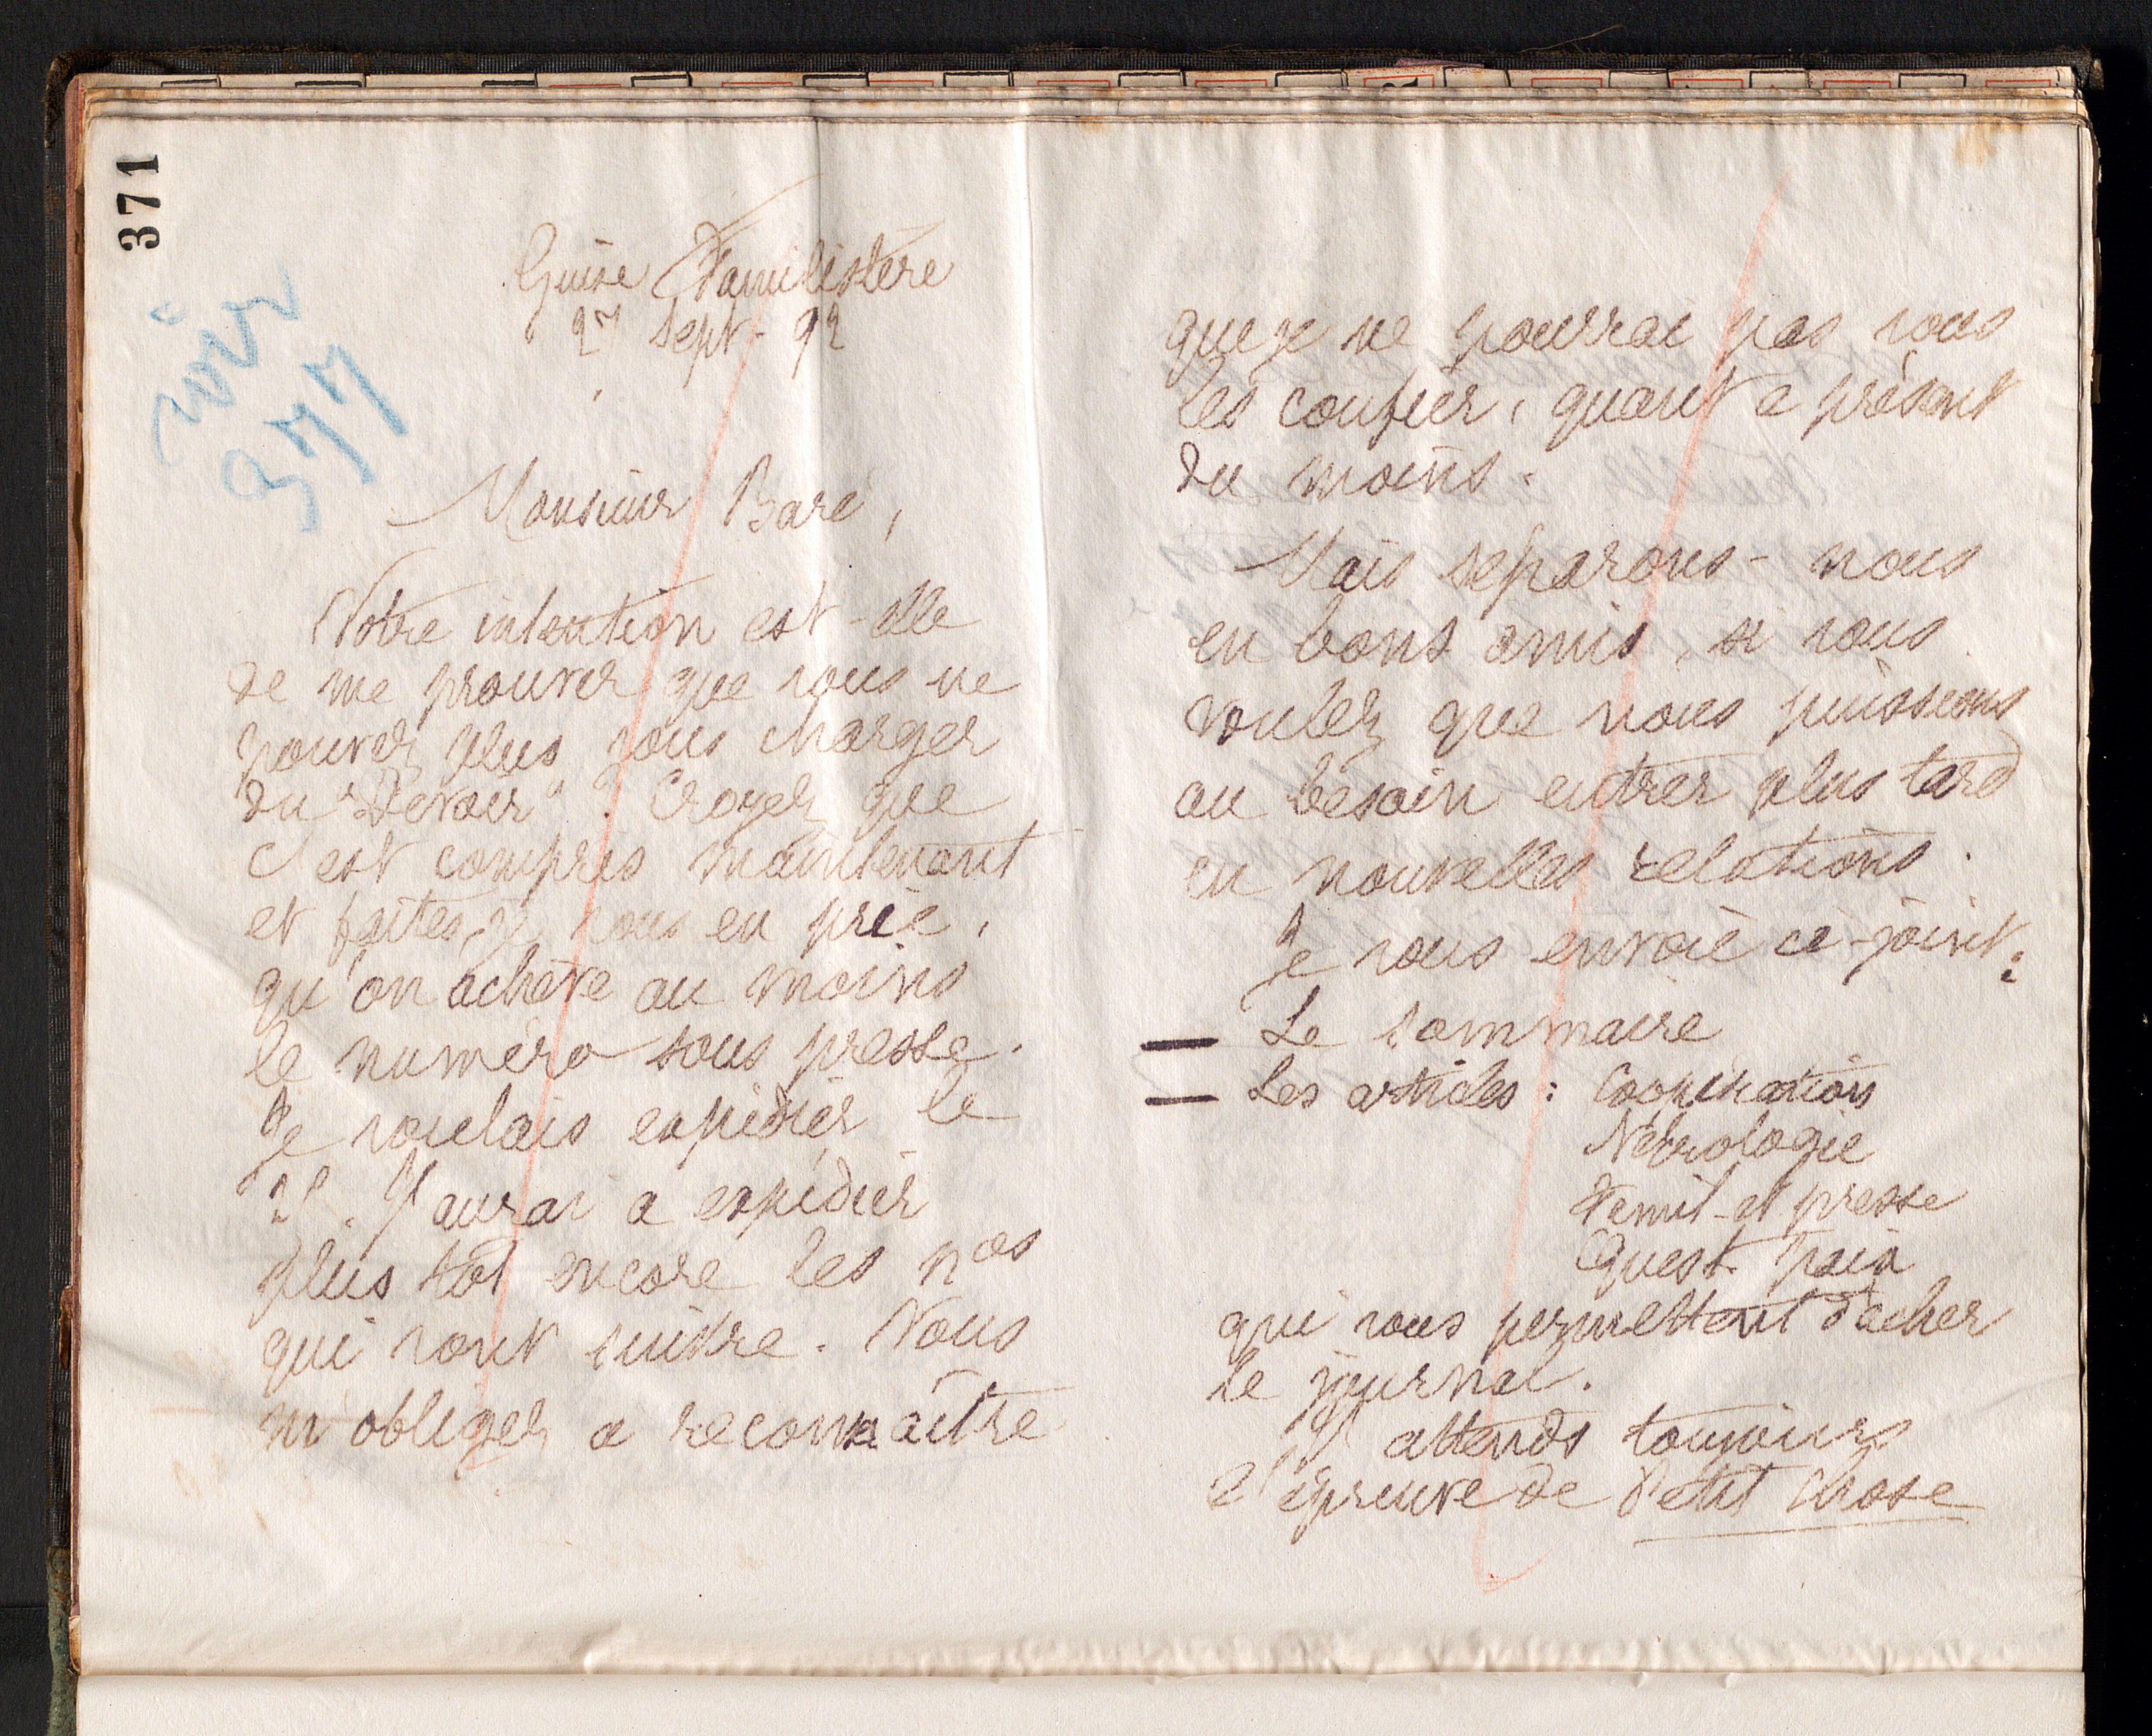 371
voir
377
Guise Familistère
27 sept. 92
Monsieur Baré,
Votre intention est-elle
de me prouver que vous ne
pouvez plus vous charger
du "Devoir"? Croyez que
c'est compris maintenant
et faites, je vous en prie,
qu'on achève au moins
le numéro sous presse.
Je voulais expédier le
J'aurai à expédier
plus tôt encore les nos
qui vont suivre. Vous
m'obligez à reconnaître
que je ne pourrai pas vous
les confier, quant à présent
du moins.
Mais séparons-nous
en bons amis, si vous
voulez que nous puissions
au besoin entrer plus tard
en nouvelles relations.
Je vous envoie ci-joint:
— Le sommaire
— Les articles: Coopération
Nécrologie
Famil. et presse
Quest. paix
qui vous permettent d'acher
le journal.
J'attends toujours
l'épreuve de Petit Chose